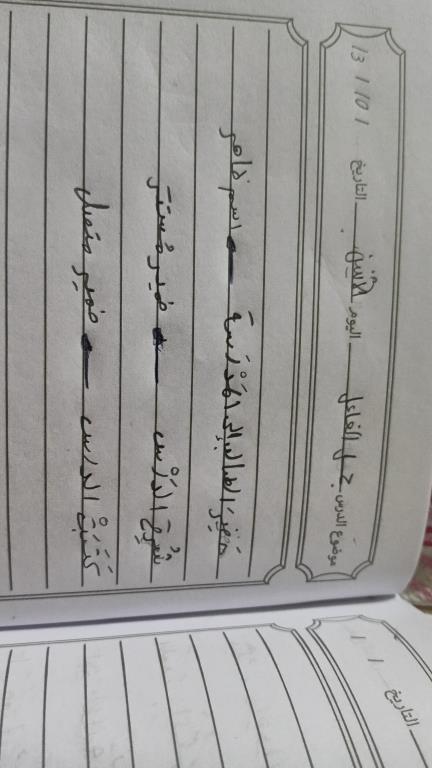 موضوع الدرس جمل الفاعل اليوم الاثنين التاريخ 13 / 10 /
حَضَرَ الطالب إلى المَدْرَسَة ← اسم ظاهر
نَشْرَحُ الدَّرْسَ ← ضمير مُستتر
كَتَبَتُ الدرس ← ضمير متصل
التاريخ / /